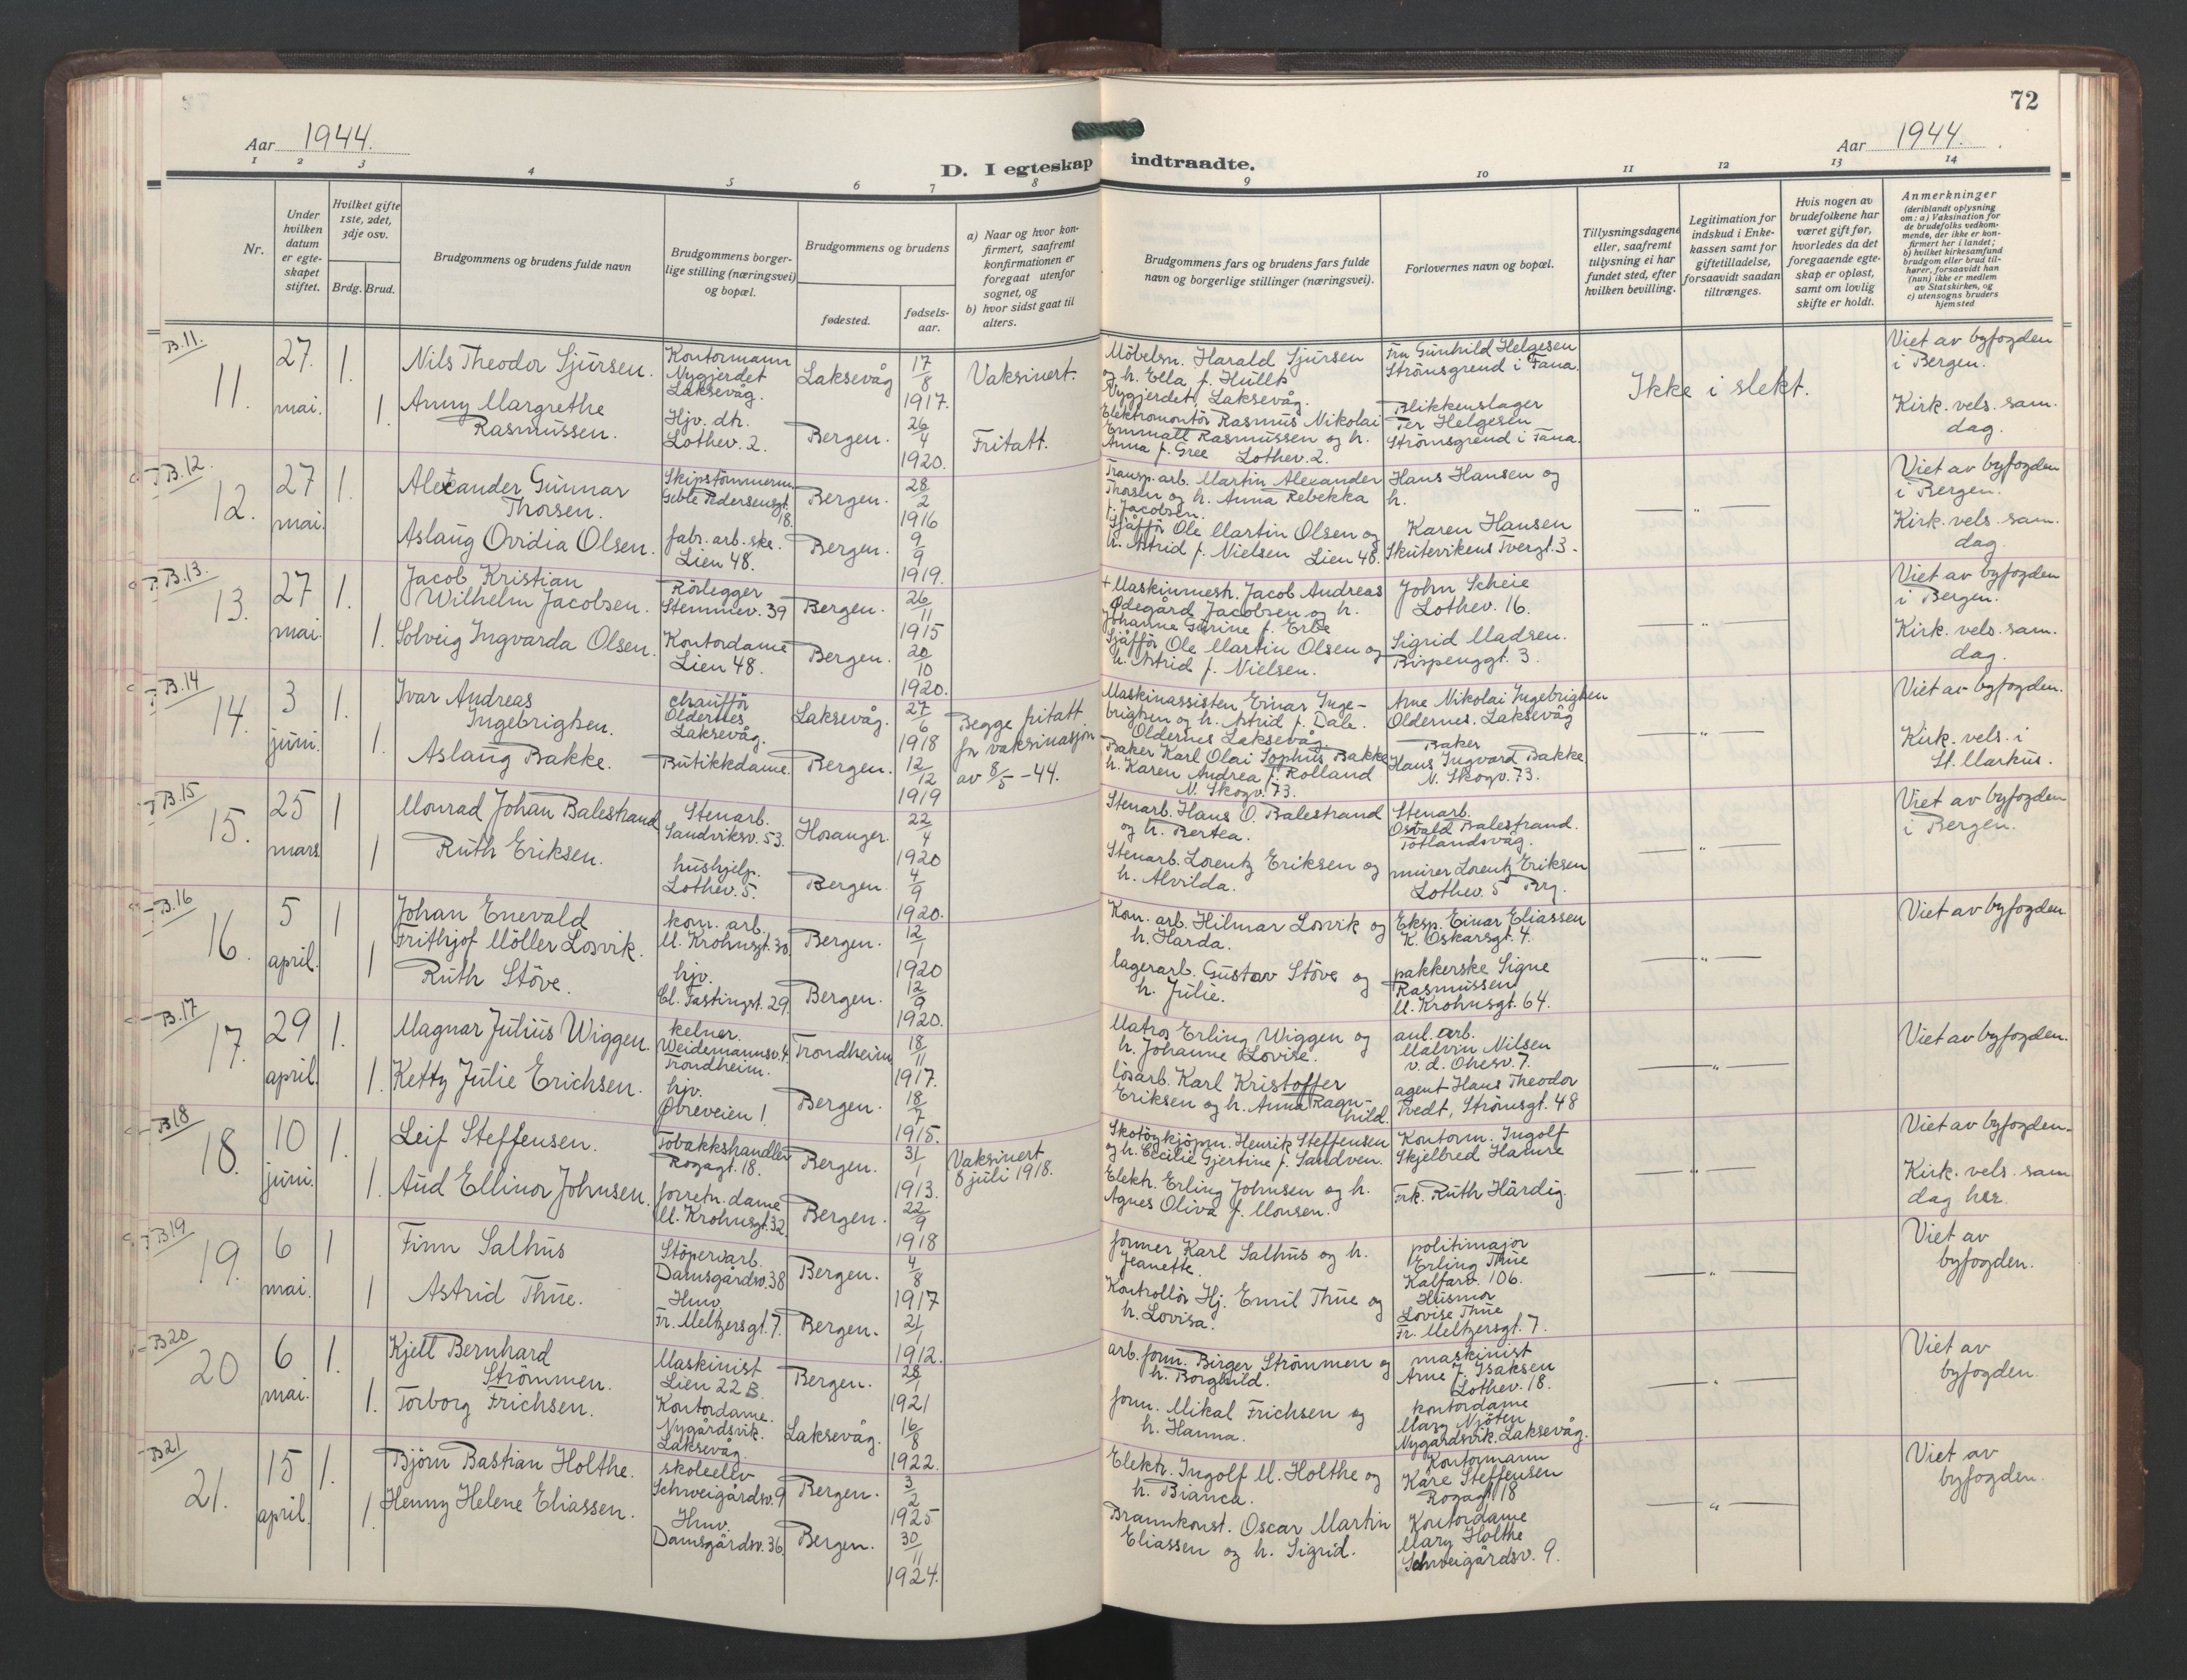 72
Aar 1944.
D. I egteskap indtraadte.
Aar 1944.
1 2 3 4 5 6 7 8 9 10 11 12 13 14
Nr.
Under hvilken datum er egteskapet stiftet.
Hvilket gifte 1ste, 2det, 3dje osv.
Brdg. Brud.
Brudgommens og brudens fulde navn
Brudgommens borgerlige stilling (næringsvei) og bopæl.
Brudgommens og brudens
fødested.
fødselsaar.
a) Naar og hvor konfirmert, saafremt konfirmationen er foregaat utenfor sognet, og
b) hvor sidst gaat til alters.
Brudgommens fars og brudens fars fulde navn og borgerlige stillinger (næringsvei).
Forlovernes navn og bopæl.
Tillysningsdagene eller, saafremt tillysning ei har fundet sted, efter hvilken bevilling.
Legitimation for indskud i Enkekassen samt for giftetilladelse, forsaavidt saadan tiltrænges.
Hvis nogen av brudefolkene har været gift før, hvorledes da det foregaaende egteskap er opløst, samt om lovlig skifte er holdt.
Anmerkninger
(deriblandt oplysning om: a) Vaksination for de brudefolks vedkommende, der ikke er konfirmert her i landet; b) hvilket kirkesamfund brudgom eller brud tilhører, forsaavidt han (hun) ikke er medlem av Statskirken, og c) utensogns bruders hjemsted
B.11.
11. 27. mai. 1. Nils Theodor Sjursen. Kontormann Nygjerdet Laksevåg. Laksevåg 17/8 1917. Vaksinert.
1. Anny Margrethe Rasmussen. Hjv. dtr. Lothev. 2. Bergen. 26/4 1920. Fritatt.
Möbelsn. Harald Sjursen og h. Ella f. Hullk Nygjerdet, Laksevåg.
Elektromontör Rasmus Nikolai Emmatt Rasmussen og h. Anna f. Gree Lothev. 2.
Fru Gunhild Helgesen Strömsgrend i Fana.
Blikkenslager Per Helgesen Strömsgrend i Fana.
Ikke i slekt.
Viet av byfogden i Bergen.
Kirk. vels. sam. dag.
B.12.
12. 27 mai. 1. Alexander Gunnar Thorsen. Skipstömmerm. Geble Pedersensgt. 18. Bergen. 28/2 1916
Aslaug Ovidia Olsen. fabr. arb. ske. Lien 48. Bergen. 9/9 1919.
Transp. arb. Martin Alexander Thorsen og h. Anna Rebekka f. Jacobsen.
Sjåfför Ole Martin Olsen og h. Astrid f. Nielsen Lien 48.
Hans Hansen og h.
Karen Hansen Skutevikens Tvergt. 3.
— „ —
Viet av byfogden i Bergen.
Kirk. vels. sam. dag.
B.13.
13. 27 mai. 1. Jacob Kristian Wilhelm Jacobsen. Rörlegger Stemmev. 39 Bergen. 26/11 1915
1. Solveig Ingvarda Olsen. Kontordame Lien 48. Bergen. 20/10 1920.
+ Maskinmestr. Jacob Andreas Ødegård Jacobsen og h. Johanne Gurine f. Erbe
Sjåfför Ole Martin Olsen og h. Astrid f. Nielsen.
John Scheie Lothev. 16.
Sigrid Madsen. Bispenggt. 3.
— „ —
Viet av byfogden i Bergen.
Kirk. vels. sam. dag.
B.14
14. 3 juni. 1. Ivar Andreas Ingebrigtsen. chaufför Oldernes Laksevåg. Laksevåg. 27/6 1918
1. Aslaug Bakke. Butikkdame. Bergen. 12/12 1919
Begge fritatt for vaksinasjon av 8/5 -44.
Maskinassisten Einar Ingebrigtsen og h. Astrid f. Dale. Oldernes Laksevåg.
Baker Karl Olai Sophus Bakke h. Karen Andrea f. Rolland N. Skogv. 73.
Arne Nikolai Ingebrigtsen Oldernes, Laksevåg
Baker Hans Ingvard Bakke N. Skogv. 73.
— „ —
Viet av byfogden.
Kirk. vels. i St. Markus.
B.15
15. 25 mars 1 Monrad Johan Balestrand Stenarb. Sandviksv. 53. Hosanger. 22/4 1920
1 Ruth Eriksen. hushjelp. Lothev. 5. Bergen. 4/9 1920.
Stenarb. Hans O. Balestrand og h. Bertea.
Stenarb. Lorentz Eriksen og h. Alvilda.
Stenarb. Osvald Balestrand. Totlandsvåg.
murer Lorentz Eriksen Lothev. 5 Brg.
— „ —
Viet av byfogden i Bergen.
B.16
16. 5 april. 1 Johan Enevald Frithjof Möller Losvik. kom. arb. M. Krohnsgt. 30 Bergen. 12/1 1920
1 Ruth Støve. hjv. Cl. Fastingst. 29. Bergen. 12/9 1920.
Kom. arb. Hilmar Losvik og h. Harda.
lagerarb. Gustav Støve og h. Julie.
Eksp. Einar Eliassen K. Oskarsgt. 4.
pakkerske Signe Rasmussen M. Krohnsgt. 64.
— „ —
Viet av byfogden
B.17
17. 29 april. 1. Magnar Julius Wiggen. kelner. Weidemannsv. 4 Trondheim. Trondheim 18/11 1917.
1. Ketty Julie Erichsen. hjv. Øvreveien 1 Bergen. 18/7 1915.
Matros Erling Wiggen og h. Johanne Lovise.
lösarb. Karl Kristoffer Eriksen og h. Anna Ragnhild.
anl. arb. Malvin Nilsen v. d. Ohesv. 7.
agent Hans Theodor Tvedt, Strömsgt. 48
— „ —
Viet av byfogden.
B18
18. 10 juni. 1. Leif Steffensen. Tobakkshandler Rogagt. 18. Bergen. 31/1 1913.
1. Aud Ellinor Johnsen. forretn. dame M. Krohnsgt. 32. Bergen. 22/9 1918
Vaksinert 8 juli 1918.
Skotöykjöpm. Henrik Steffensen og h. Cecilie Gjertine f. Sandven.
Elektr. Erling Johnsen og h. Agnes Oliva f. Monsen.
Kontorm. Ingolf Skjelbred Hamre
Frk. Ruth Härdig.
— „ —
Viet av byfogden.
Kirk. vels. sam dag her.
B19
19. 6 mai. 1 Finn Salhus Stöperiarb. Damsgårdsv. 38 Bergen. 4/8 1917
1 Astrid Thue. Hmv. Fr. Meltzersgt. 7. Bergen. 21/1 1912.
former Karl Salhus og h. Jeanette.
Kontrollör Hj. Emil Thue og h. Lovisa.
politimajor Erling Thue Kalfarv. 106.
Husmor Lovise Thue Fr. Meltzersgt. 7.
— „ —
Viet av byfogden.
B20
20 6 mai. 1. Kjell Bernhard Strömmen. Maskinist Lien 22 B. Bergen. 28/1 1921
1. Torborg Frichsen. Kontordame. Nygårdsvik. Laksevåg Laksevåg. 16/8 1922.
arb. form. Birger Strömmen og h. Borghild.
form. Mikal Frichsen og h. Hanna.
maskinist Arne J. Isaksen Lothev. 18.
kontordame Mary Njöten Nygårdsvik. Laksevåg.
— „ —
Viet av byfogden.
B21
21. 15 april. 1. Björn Bastian Holthe. skoleelev Schweigårdsv. 9 Bergen. 3/2 1925
1. Henny Helene Eliassen. Hmv. Damsgårdsv. 36. Bergen. 30/11 1924.
Elektr. Ingolf M. Holthe og h. Bianca.
Brannkonst. Oscar Martin Eliassen og h. Sigrid.
Kontormann Kåre Steffensen Rogagt 18
Kontordame Mary Holthe Schweigårdsv. 9.
— „ —
Viet av byfogden.